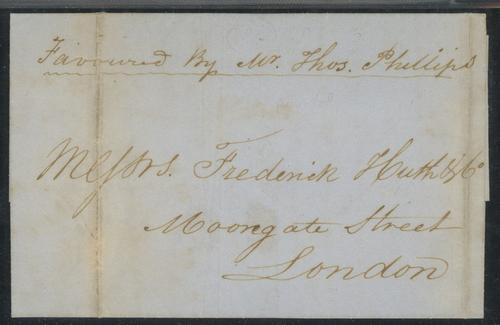 Favoured By Mr. Thos. Phillips
Messrs. Frederick Huth & Co
Moorgate Street
London